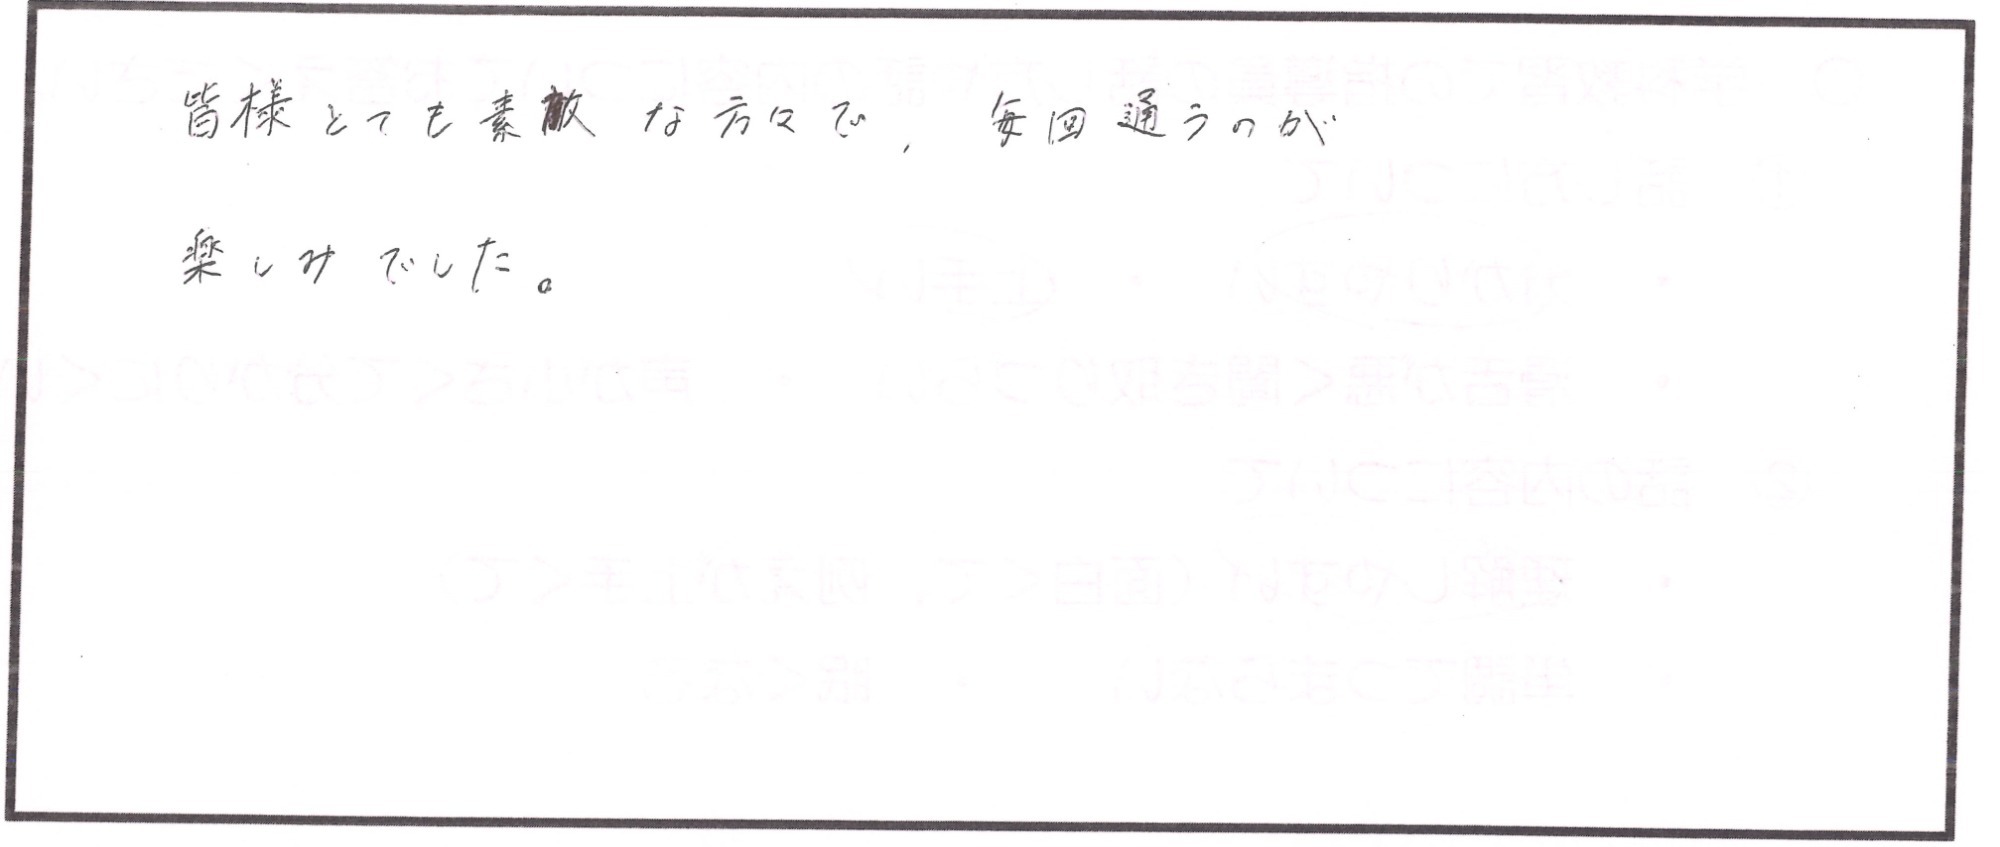 皆様とても素敵な方々で、毎回通うのが
楽しみでした。